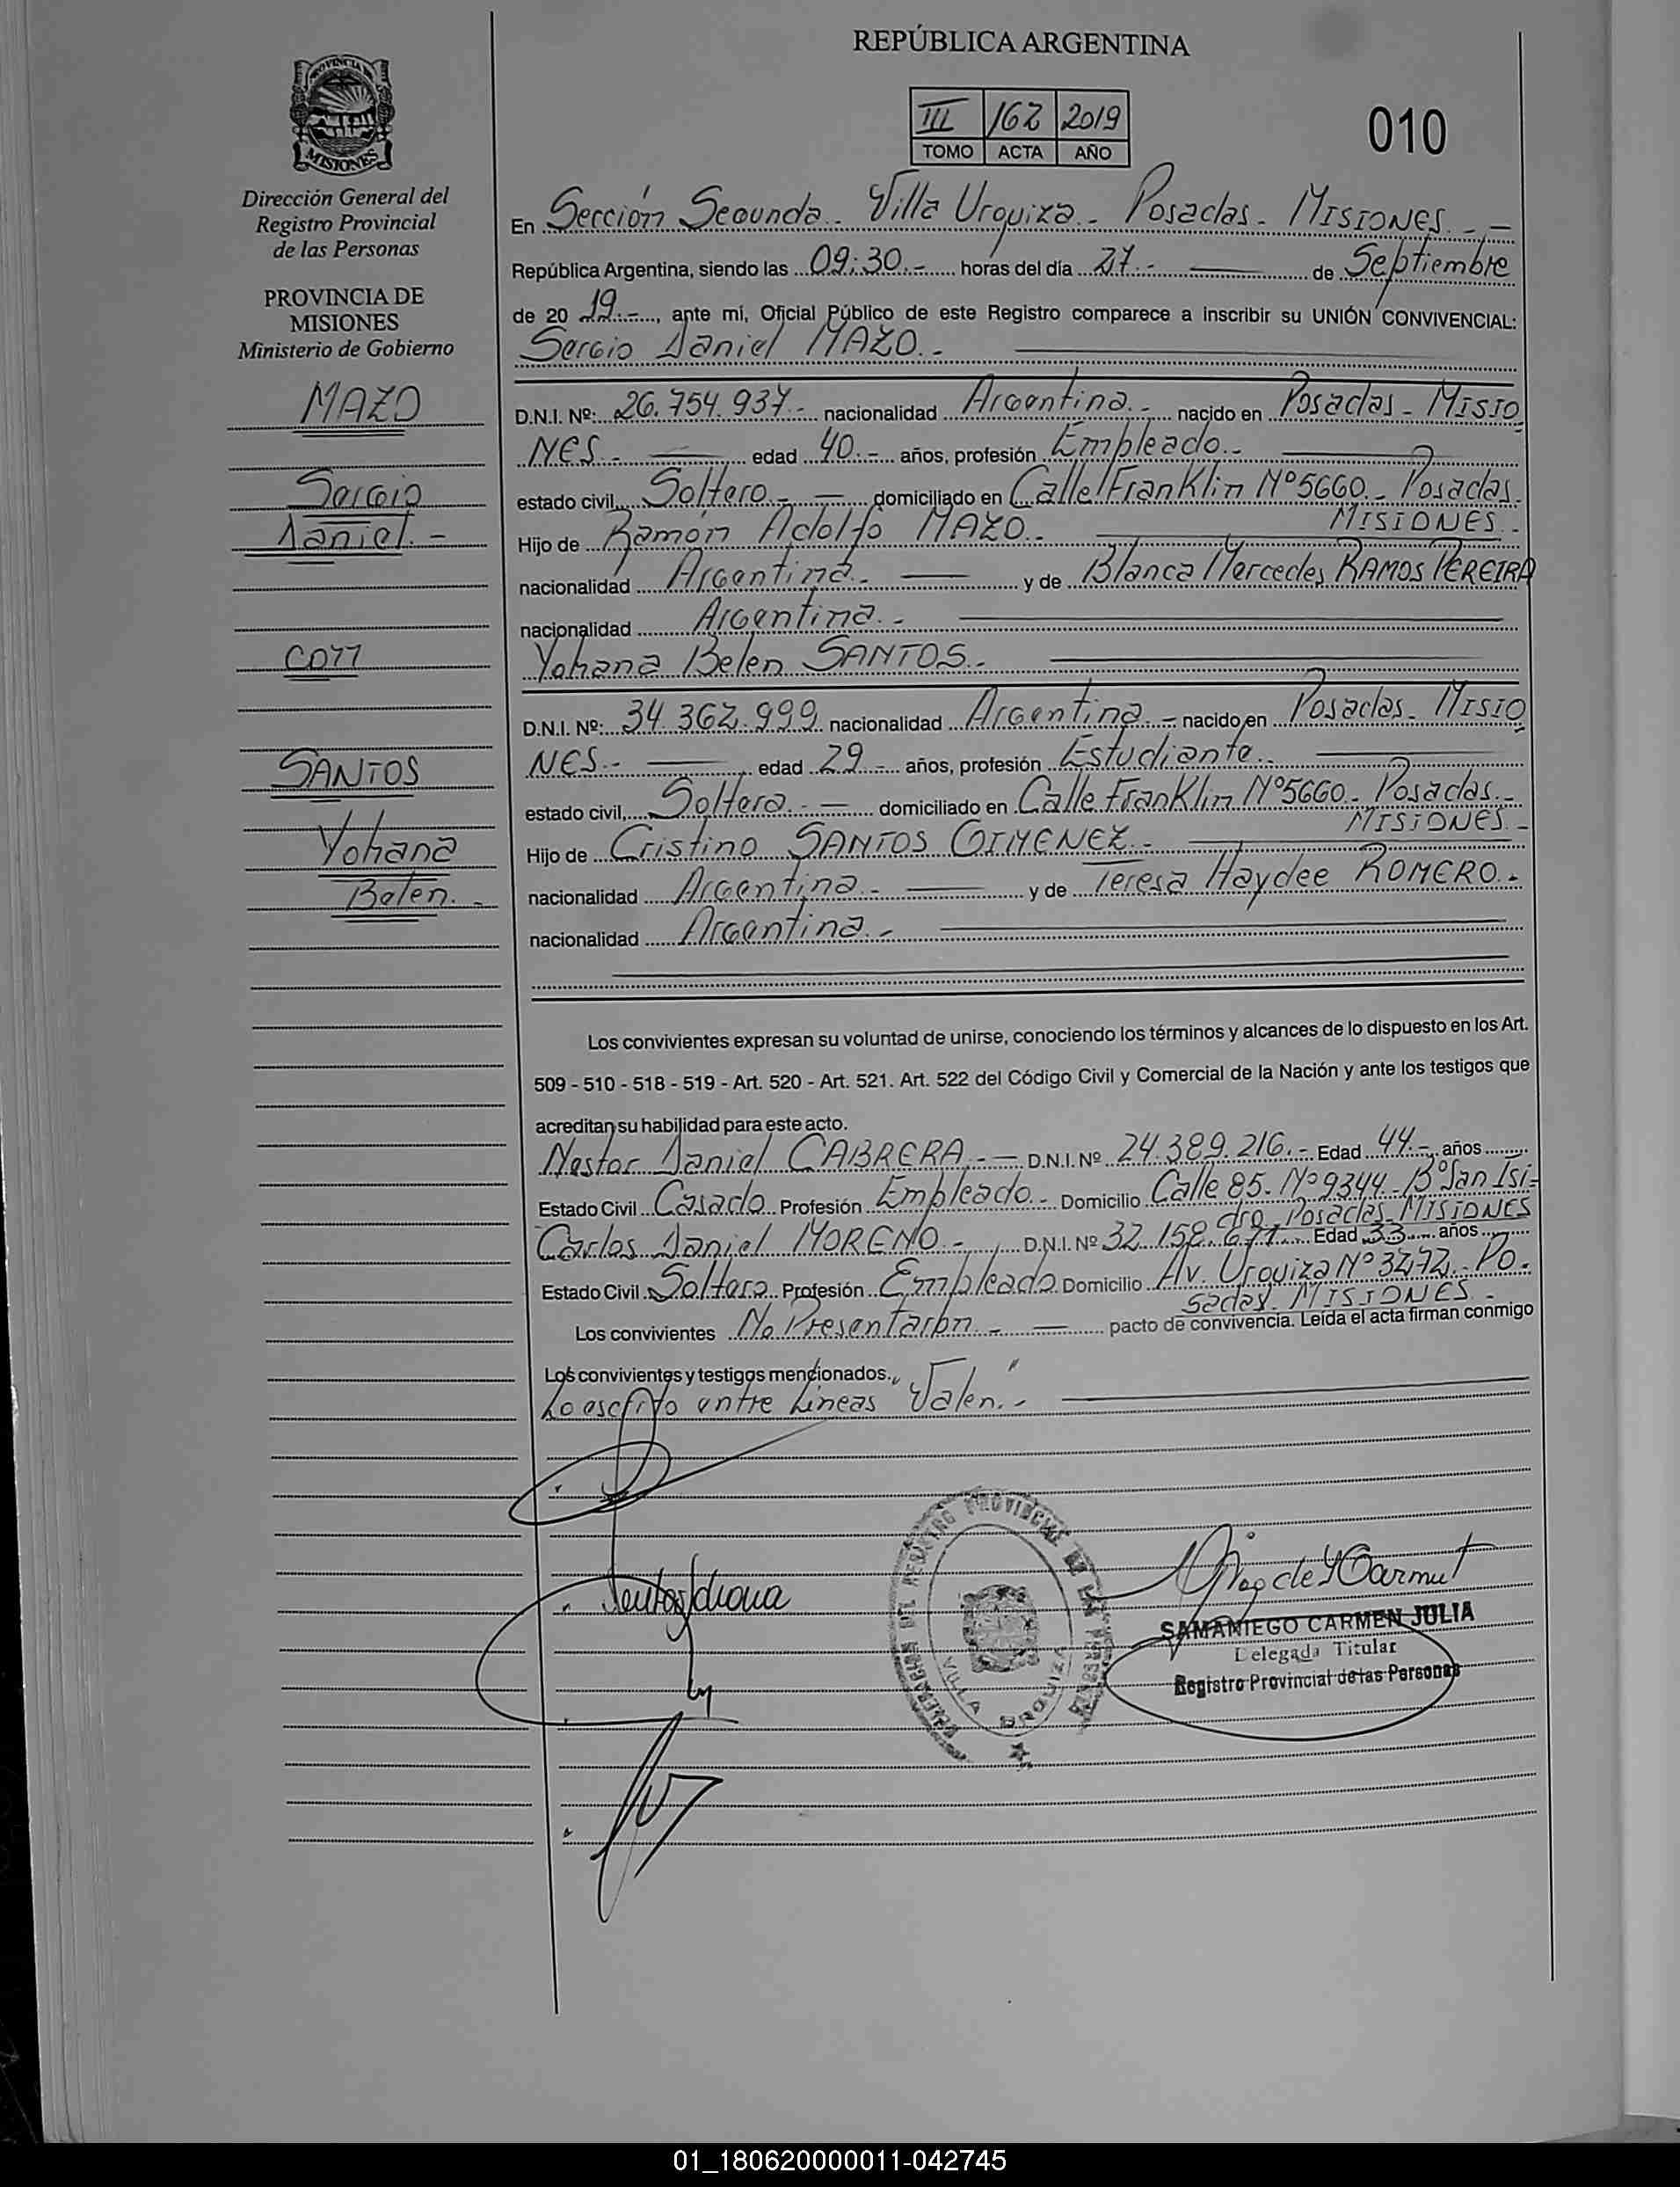 REPÚBLICA ARGENTINA
PROVINCIA DE
MISIONES
III 162 2019
TOMO ACTA AÑO
010
Dirección General del
Registro Provincial
de las Personas
PROVINCIA DE
MISIONES
Ministerio de Gobierno
MAZO
Sergio
Daniel.-
con
SANTOS
Yohana
Belen.-
En Sección Segunda.- Villa Urquiza.- Posadas.- MISIONES.-
República Argentina, siendo las 09:30.- horas del día 27.- de Septiembre
de 20 19.-, ante mí, Oficial Público de este Registro comparece a inscribir su UNIÓN CONVIVENCIAL:
Sergio Daniel MAZO.-
D.N.I. Nº: 26.754.937.- nacionalidad Argentina.- nacido en Posadas- MISIO
NES.- edad 40.- años, profesión Empleado.-
estado civil, Soltero.- domiciliado en Calle Franklin Nº5660.- Posadas.
MISIONES.-
Hijo de Ramón Adolfo MAZO.-
nacionalidad Argentina.- y de Blanca Mercedes RAMOS PEREIRA
nacionalidad Argentina.-
Yohana Belen SANTOS.-
D.N.I. Nº: 34.362.999 nacionalidad Argentina.- nacido en Posadas- MISIO
NES.- edad 29.- años, profesión Estudiante.-
estado civil, Soltera.- domiciliado en Calle Franklin Nº5660- Posadas.-
MISIONES.-
Hijo de Cristino SANTOS GIMENEZ.-
nacionalidad Argentina.- y de Teresa Haydee ROMERO.-
nacionalidad Argentina.-
Los convivientes expresan su voluntad de unirse, conociendo los términos y alcances de lo dispuesto en los Art.
509 - 510 - 518 - 519 - Art. 520 - Art. 521. Art. 522 del Código Civil y Comercial de la Nación y ante los testigos que
acreditan su habilidad para este acto.
Nestor Daniel CABRERA.- D.N.I. Nº 24.389.216.- Edad 44.- años
Estado Civil Casado Profesión Empleado.- Domicilio Calle 85. Nº9344- Bº San Isi-
dro, Posadas- MISIONES
Carlos Daniel MORENO.- D.N.I. Nº 32.158.677 Edad 33 años
Estado Civil Soltero Profesión Empleado Domicilio Av. Urquiza Nº3472.- Po.
sadas. MISIONES.-
Los convivientes No Presentarón.- pacto de convivencia. Leída el acta firman conmigo
Los convivientes y testigos mencionados.
Lo escrito entre Lineas "Valen".-
VILLA URQUIZA
SAMANIEGO CARMEN JULIA
Delegada Titular
Registro Provincial de las Personas
01_180620000011-042745